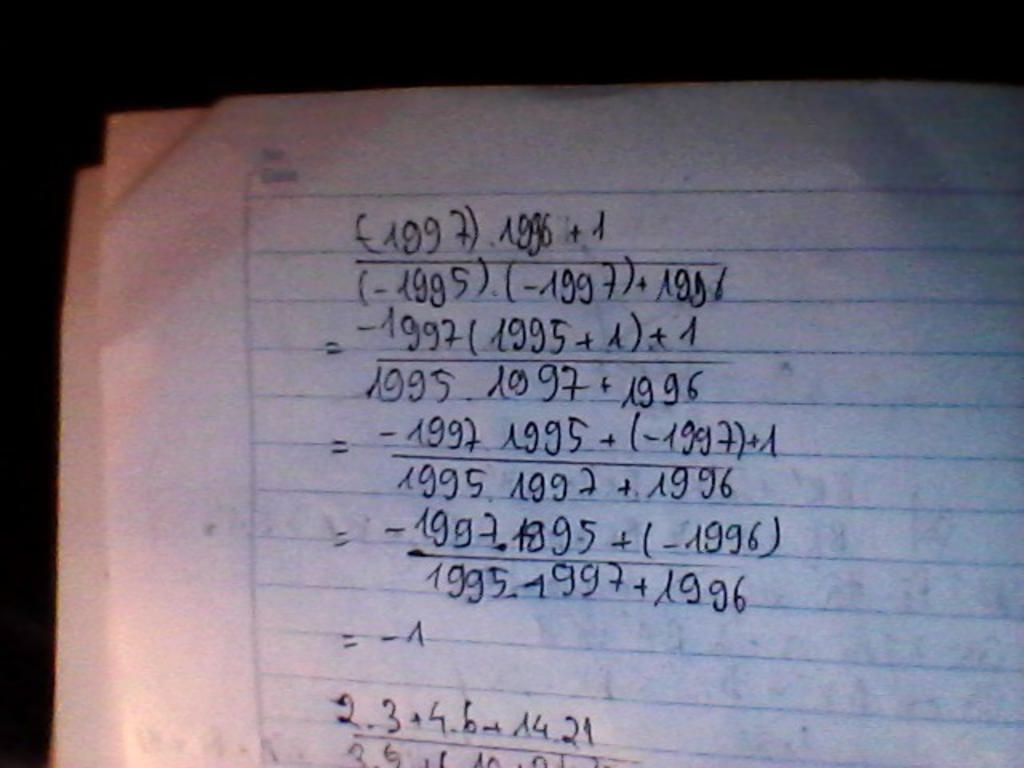 (-1997).1996+1
(-1995).(-1997)+1996
= -1997(1995+1)+1
1995.1997+1996
= -1997 1995+(-1997)+1
1995.1997+1996
= -1997.1995+(-1996)
1995.1997+1996
= -1
2.3+4.6+14.21